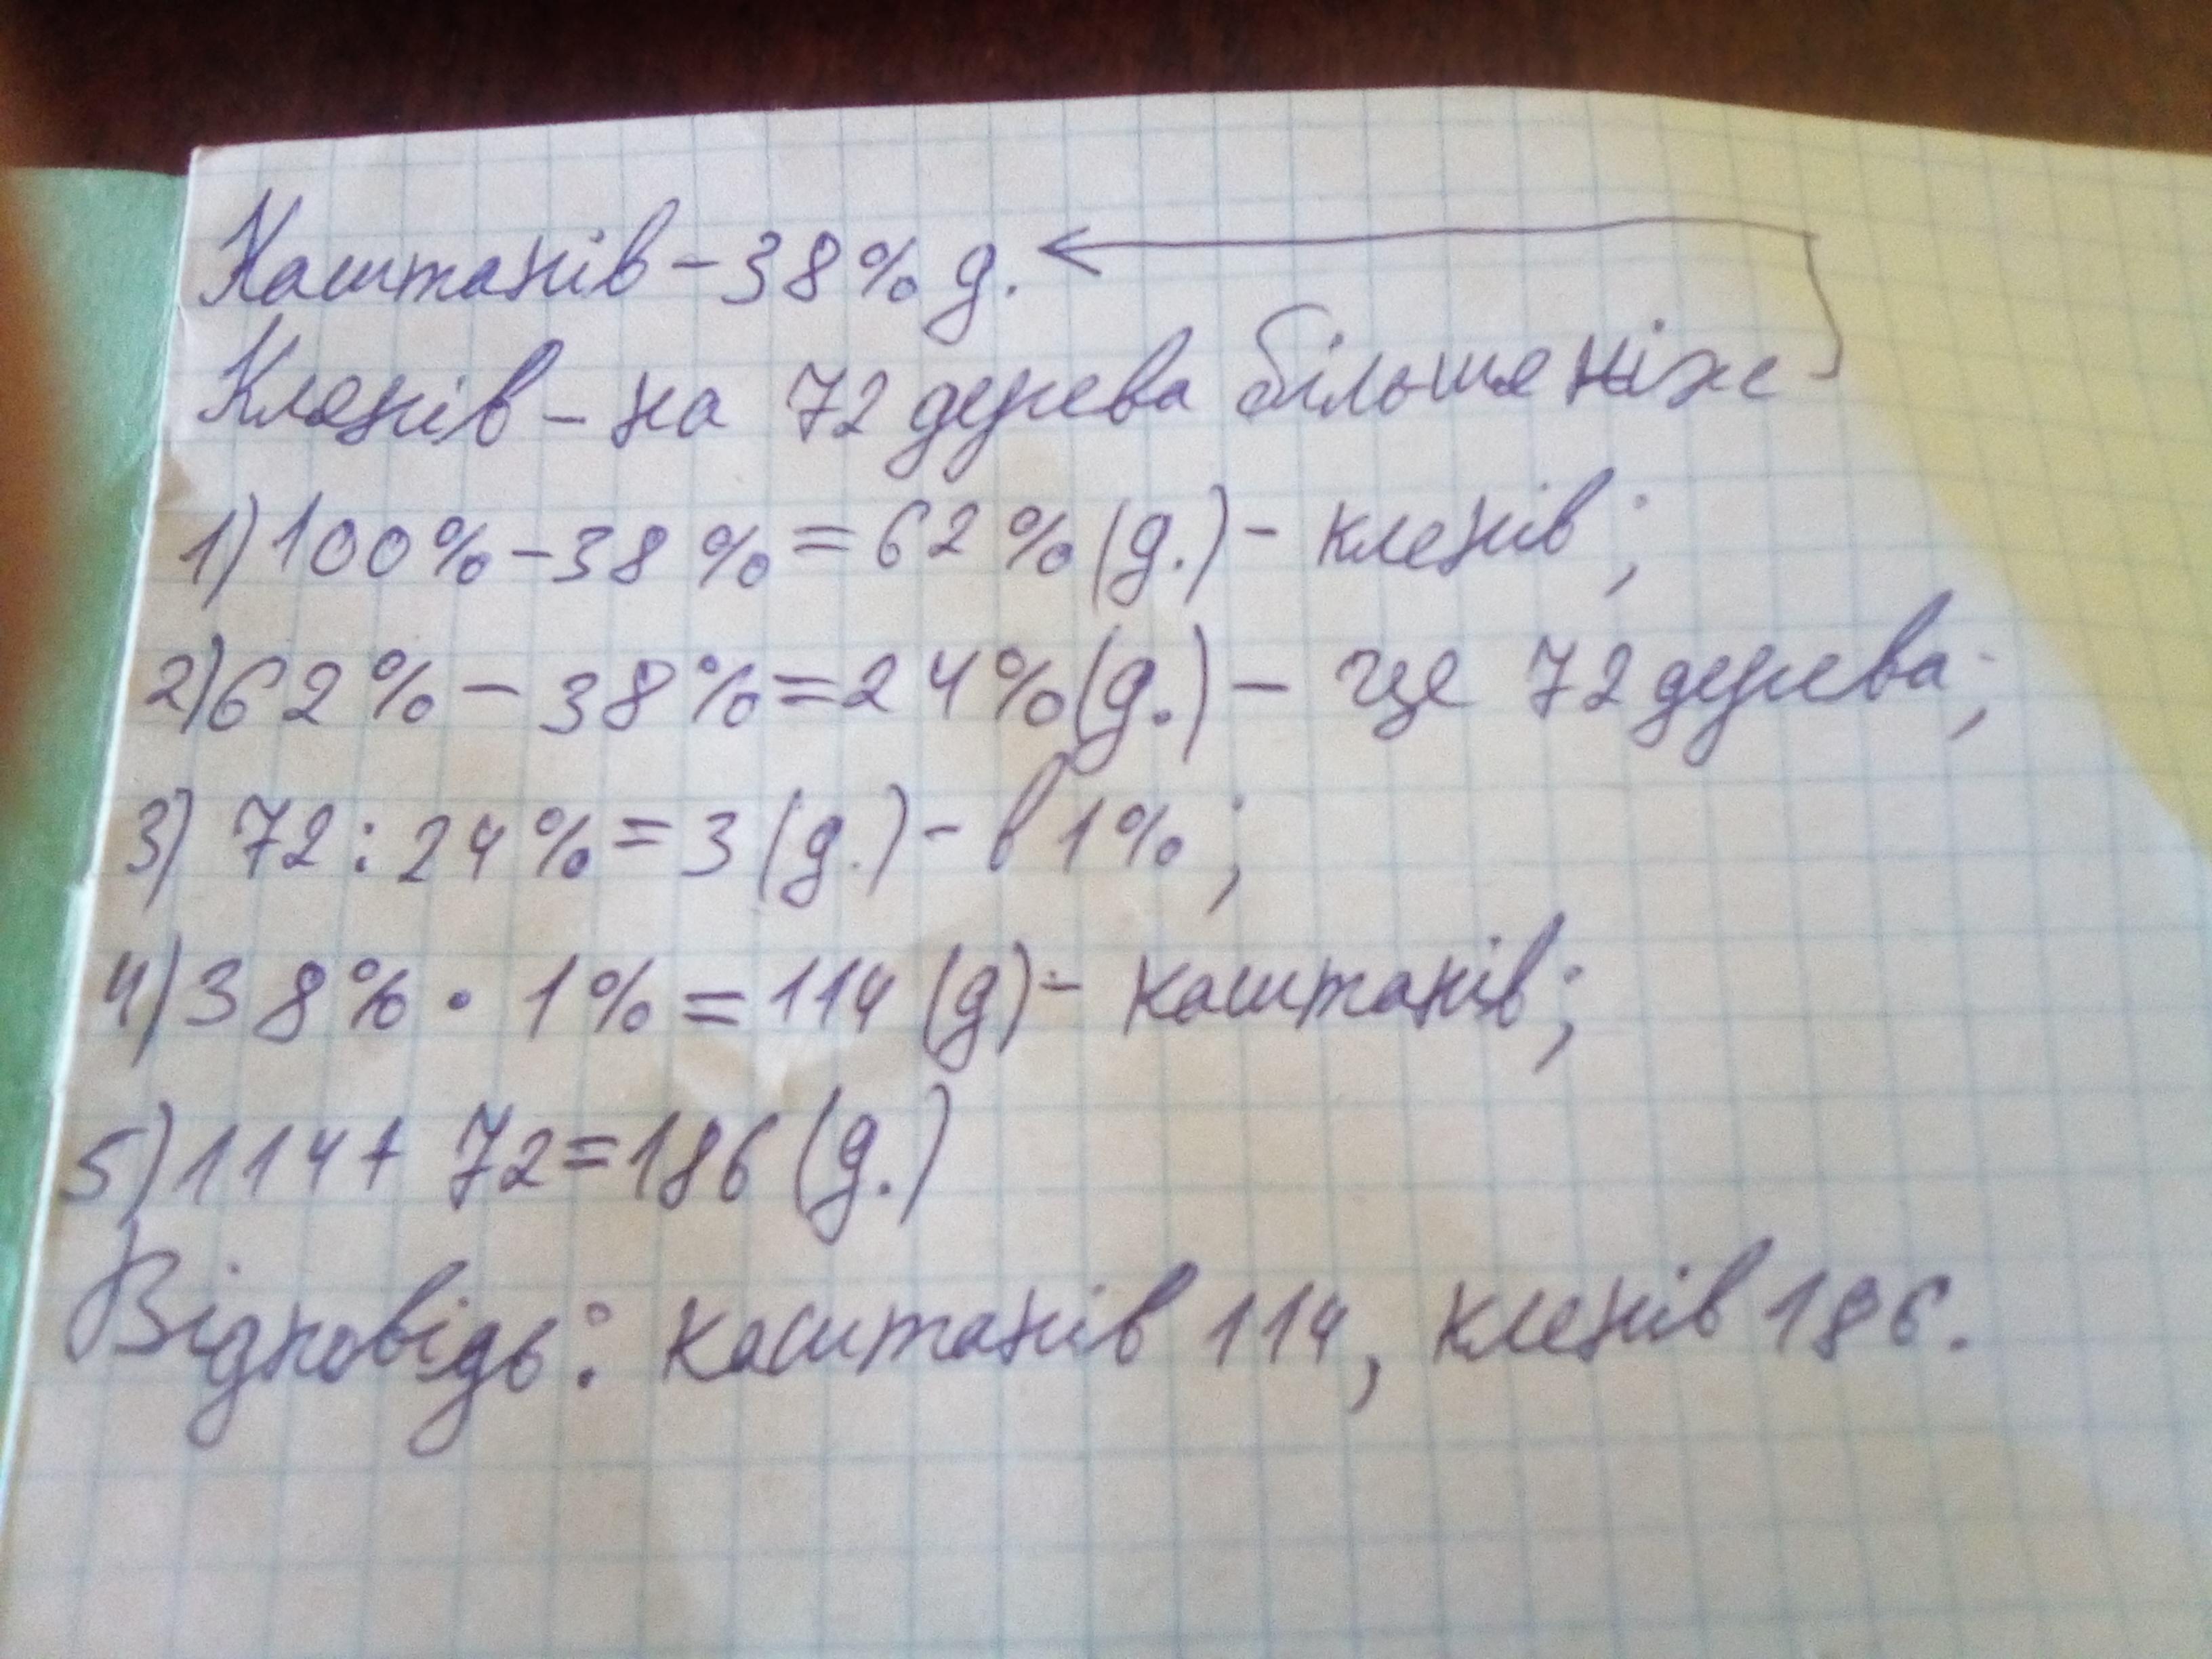 Каштанів - 38% д.
Кленів - на 72 дерева більше ніж
1) 100% - 38% = 62% (д.) - кленів;
2) 62% - 38% = 24% (д.) - це 72 дерева;
3) 72 : 24% = 3 (д.) - в 1%;
4) 38% · 1% = 114 (д) - каштанів;
5) 114 + 72 = 186 (д.)
Відповідь: каштанів 114, кленів 186.